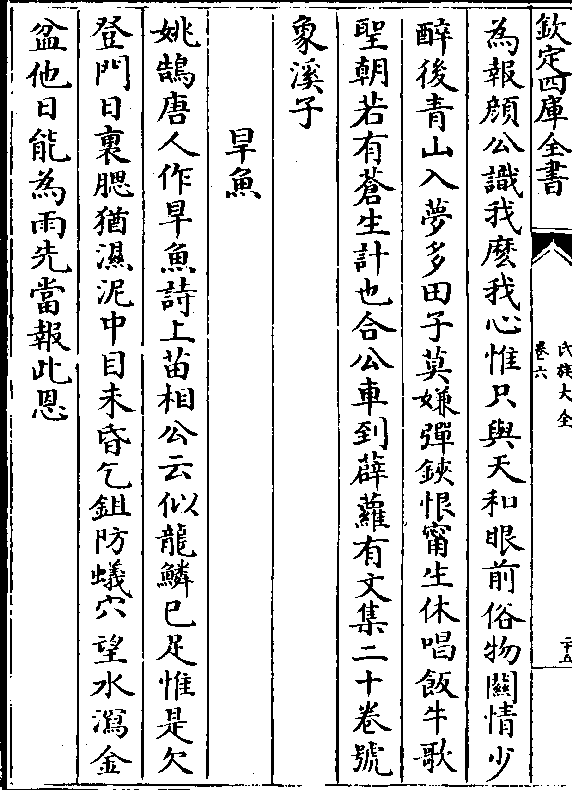 欽定四庫全書
氏族大全
卷六
二十五
為報顔公識我麽我心惟只與天和眼前俗物關情少
醉後青山入夢多田子莫嫌彈鋏恨甯生休唱飯牛歌
聖朝若有蒼生計也合公車到薜蘿有文集二十卷號
象溪子
旱魚
姚鵠唐人作旱魚詩上苗相公云似龍鱗已足惟是欠
登門日裏腮猶濕泥中目未昏乞鉏防蟻穴望水瀉金
盆他日能為雨先當報此恩